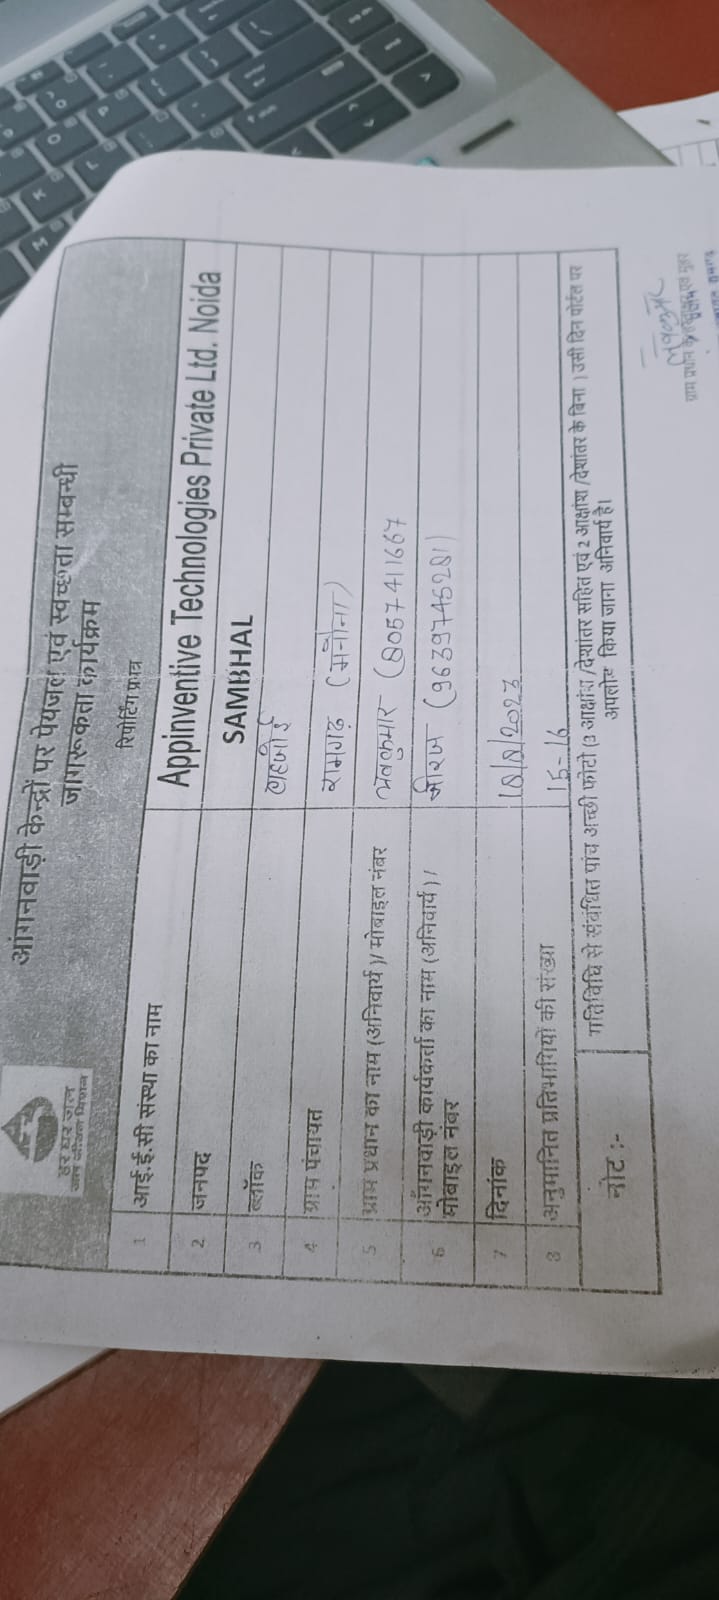 हर घर जल
जल जीवन मिशन
आंगनवाड़ी केन्द्रों पर पेयजल एवं स्वच्छता सम्बन्धी
जागरूकता कार्यक्रम
रिपोर्टिंग प्रपत्र
1 आई.ई.सी संस्था का नाम Appinventive Technologies Private Ltd. Noida
2 जनपद SAMBHAL
3 ब्लॉक
4 ग्राम पंचायत रामगढ़ (मनौना)
5 ग्राम प्रधान का नाम (अनिवार्य)/ मोबाइल नंबर (8057411667
6 आँगनवाड़ी कार्यकर्ता का नाम (अनिवार्य)/ (9639745281)
मोबाइल नंबर
7 दिनांक
8 अनुमानित प्रतिभागियों की संख्या 15-16
नोट :- गतिविधि से संबंधित पांच अच्छी फोटो (3 आक्षांश/देशांतर सहित एवं 2 आक्षांश/देशांतर के बिना) उसी दिन पोर्टल पर
अपलोड किया जाना अनिवार्य है।
ग्राम प्रधान के एवं मुहर